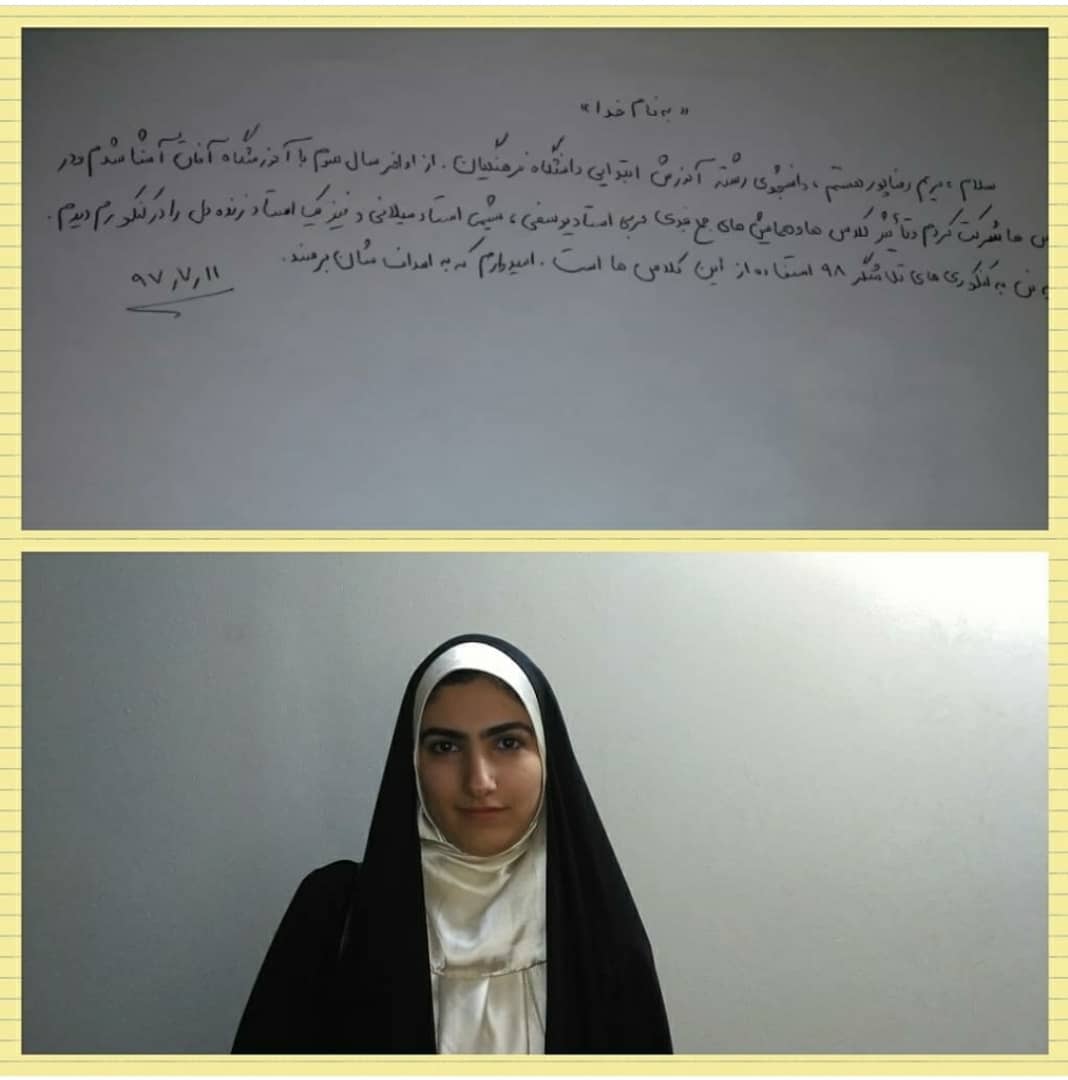 «به نام خدا»
سلام، مریم رضاپور هستم، دانشجوی رشته آموزش ابتدایی دانشگاه فرهنگیان. از اواخر سال سوم با آموزشگاه آشنا شدم و در
ها شرکت کردم و تأثیر کلاس ها و همایش های جمع بندی عربی استاد یوسفی، شیمی استاد میلانی و فیزیک استاد زنده دل را در کنکورم دیدم.
من به کنکوری های تلاشگر ۹۸ استفاده از این کلاس ها است. امیدوارم که به اهداف شان برسند.
۹۷٫۷٫۱۱